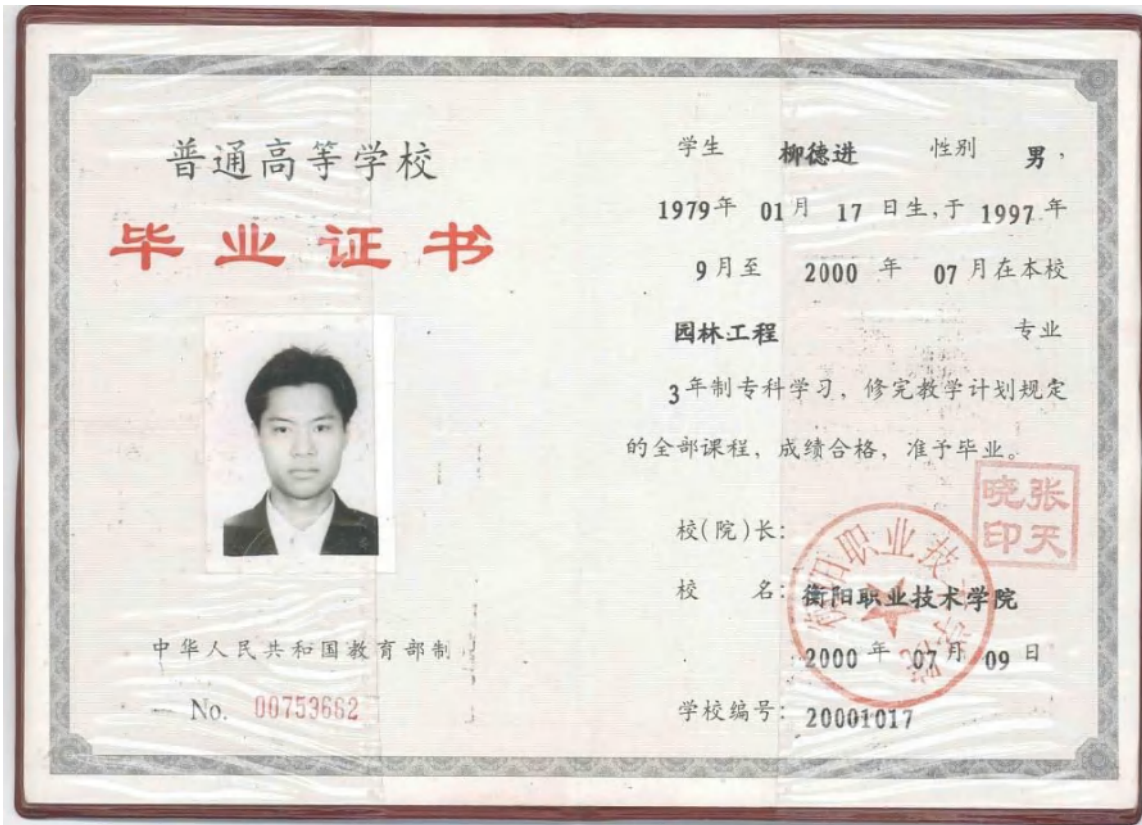 普通高等学校
毕业证书
中华人民共和国教育部制
No. 00753662
学生 柳德进 性别 男,
1979年 01月 17日生,于 1997年
9月至 2000年 07月在本校
园林工程 专业
3年制专科学习, 修完教学计划规定
的全部课程, 成绩合格, 准予毕业。
校(院)长:
张天晓印
校 名: 衡阳职业技术学院
衡阳职业技术学院
2000年 07月 09日
学校编号: 20001017